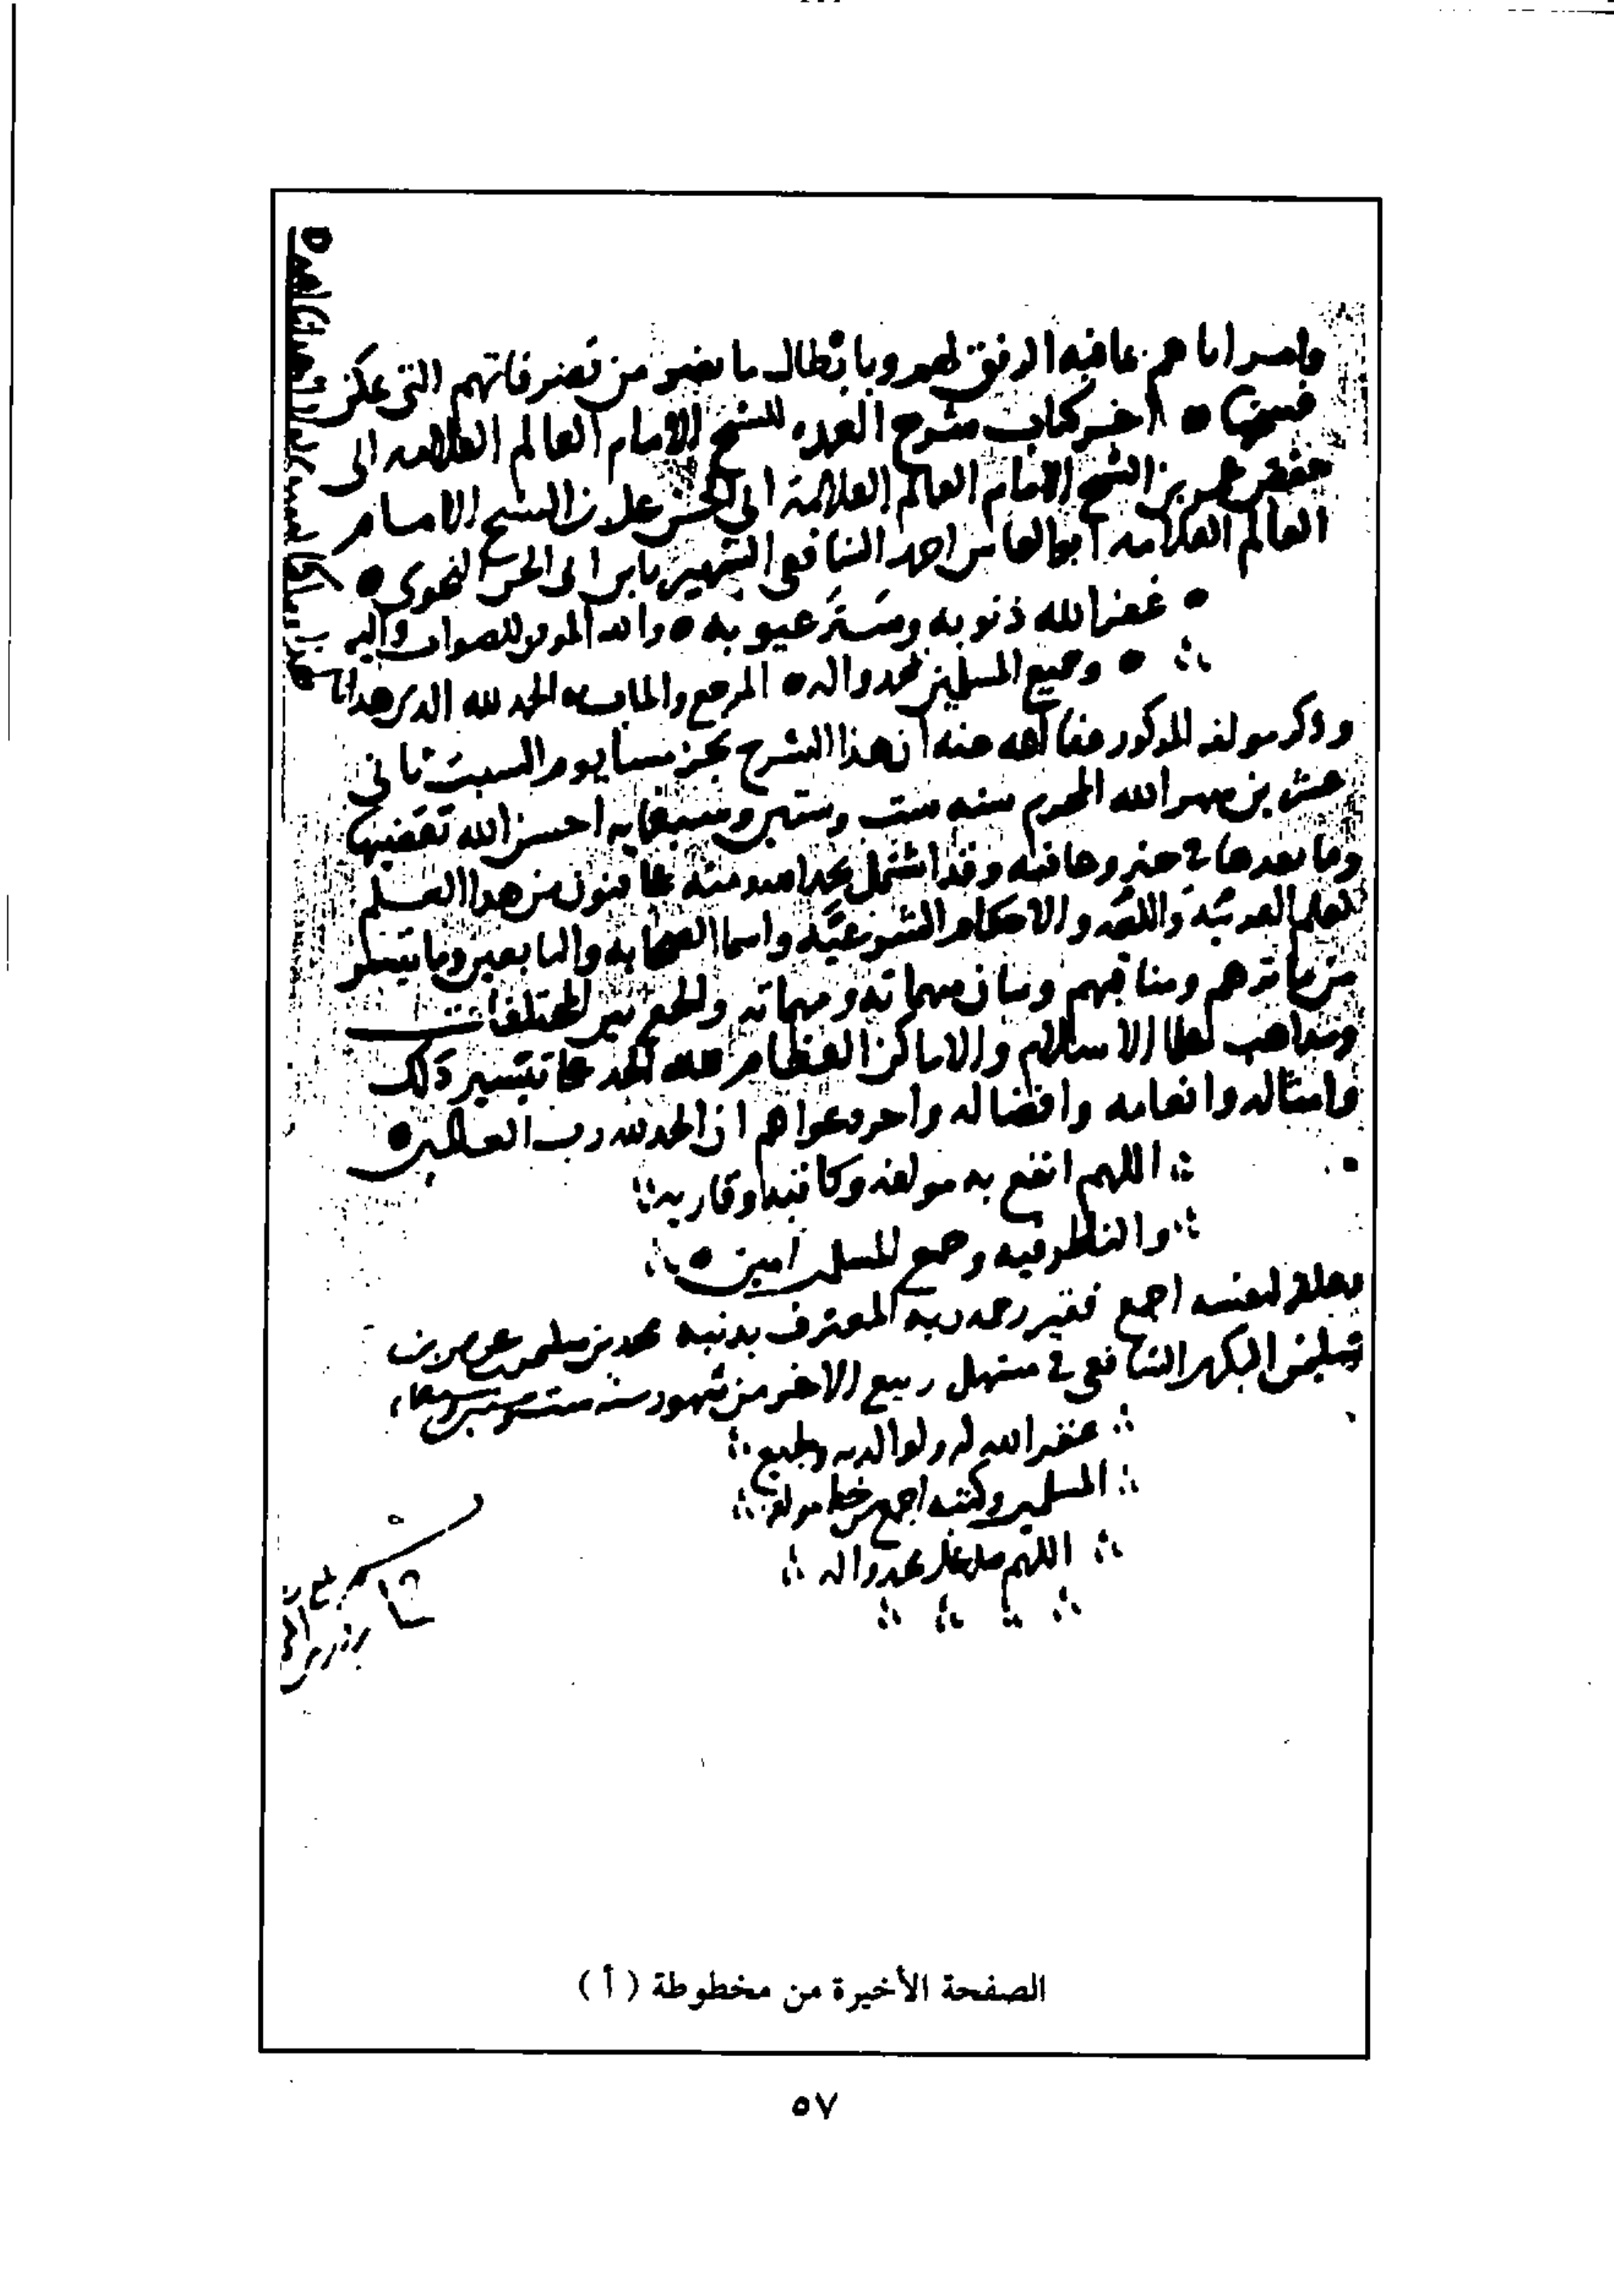 وامره اياهم بما فيه الرفق لهم وبابطال ما يضر من تصرفاتهم التى يمكن
فسخها اخر كتاب شرح العمده للشيخ الامام العالم العلامه ابى
حفص عمر بن الشيخ الامام العالم العلامة ابى الحسن على بن الشيخ الامام
العالم العلامه ابو العباس احمد الشافعى الشهير بابن ابى الحسن النحوى
غفر الله ذنوبه وستر عيوبه والله الموفق للصواب واليه
وجميع المسلمين بمحمد واله المرجع والماب الحمد لله الذى هدانا
وذكر مولفه المذكور عفا الله عنه ان هذا الشرح نجز مسا يوم السبت ثانى
عشرين شهر الله المحرم سنه ست وستين وسبعمايه احسن الله تقضيها
وما بعدها فى خير وعافيه وقد اشتمل بحمد الله ومنه على فنون من هذا العلم
كعلم العربيّة واللغه والاحكام الشرعيّه واسما الصحابه والتابعين وما تيسر
من ماثرهم ومناقبهم وبيان مبهماته ومهماته والجمع بين المختلفات
ومذاهب علما الاسلام والاماكن العظام فلله الحمد على تيسير ذلك
وامثاله وانعامه وافضاله واخر دعواهم ان الحمد لله رب العالمين
اللهم انفع به مولفه وكاتبه وقاريه
والناظر فيه وجميع المسلمين امين
علقه لنفسه اجمع فقير رحمه ربه المعترف بذنبه محمد بن
البكرى الشافعى فى مستهل ربيع الاخر من شهور سنه ست وستين وسبعمايه
غفر الله له ولوالديه ولجميع
المسلمين وكتبه اجمع من خط مولفه
اللهم صل على محمد واله
الصفحة الأخيرة من مخطوطة ( أ )
٥٧